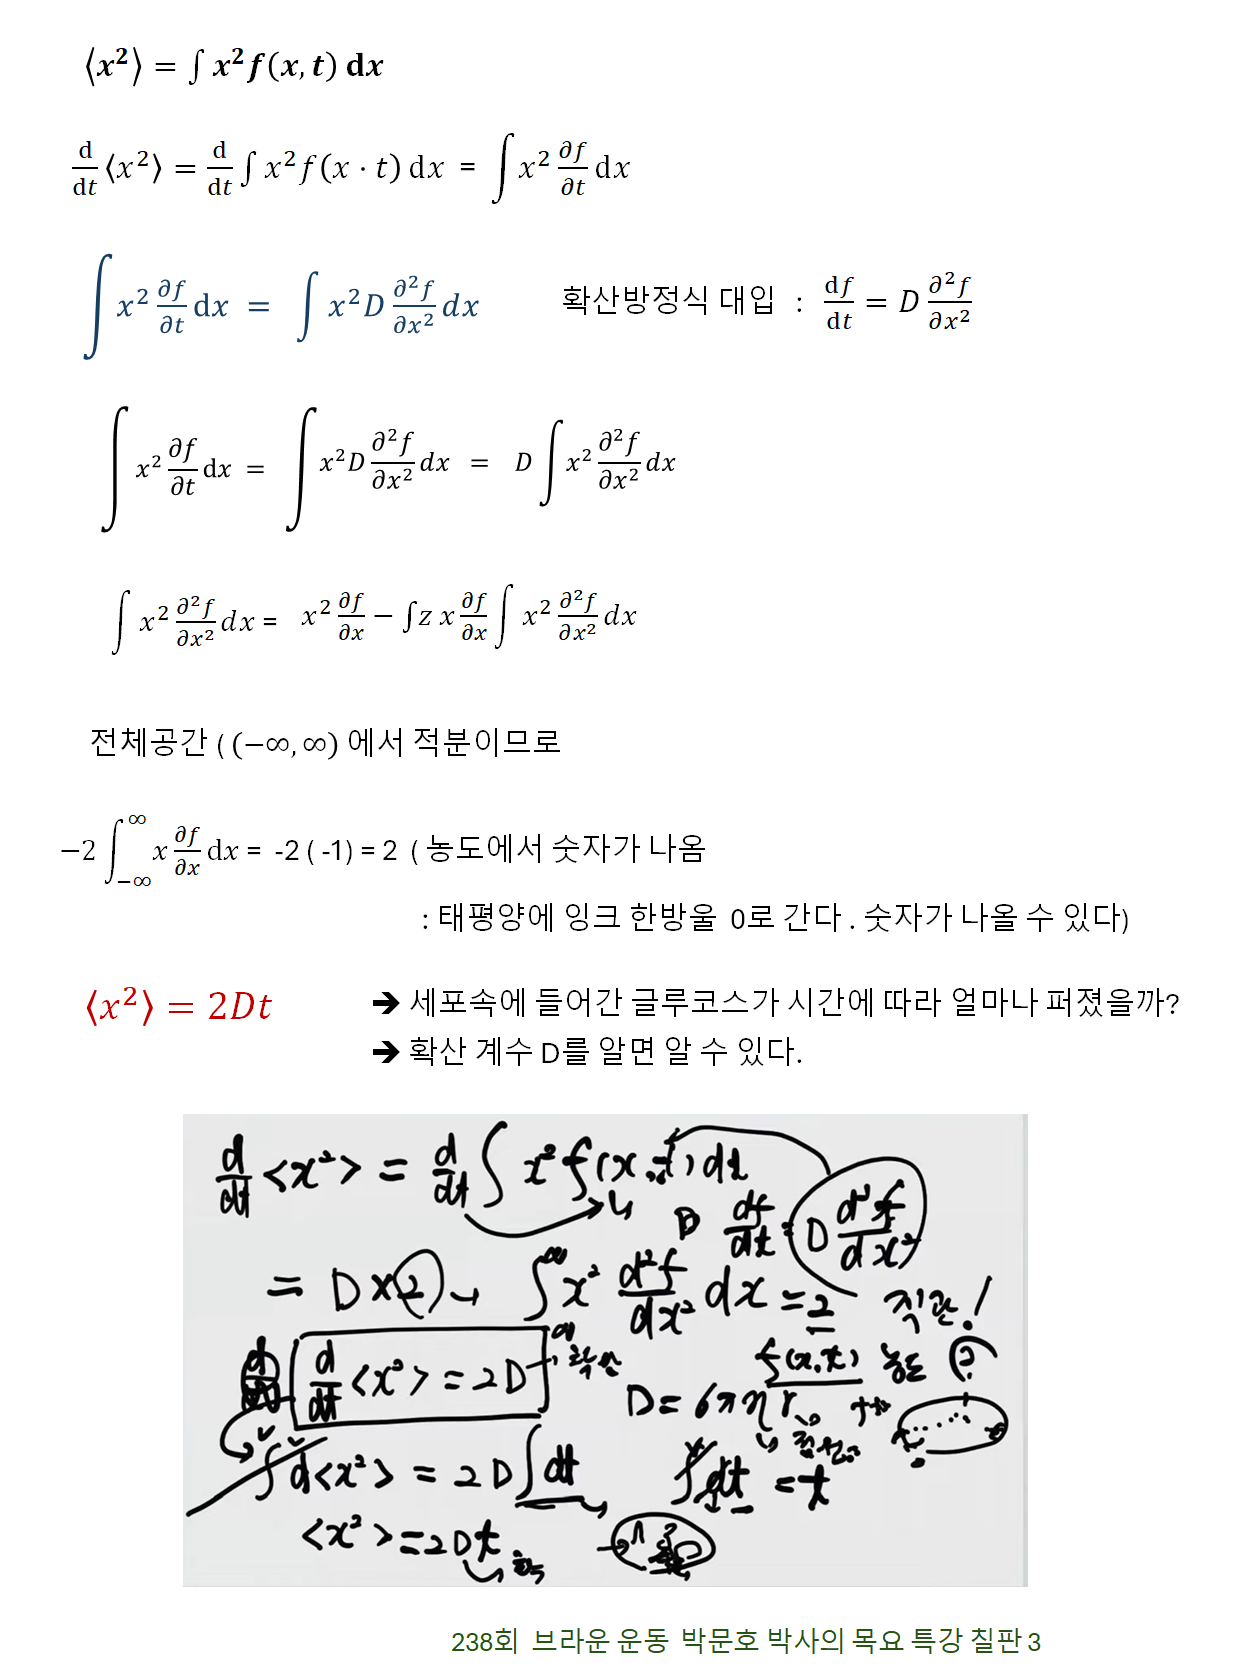 ⟨x²⟩ = ∫ x² f(x, t) dx
d/dt ⟨x²⟩ = d/dt ∫ x² f(x · t) dx = ∫ x² ∂f/∂t dx
∫ x² ∂f/∂t dx = ∫ x² D ∂²f/∂x² dx 확산방정식 대입 : df/dt = D ∂²f/∂x²
∫ x² ∂f/∂t dx = ∫ x² D ∂²f/∂x² dx = D ∫ x² ∂²f/∂x² dx
∫ x² ∂²f/∂x² dx = x² ∂f/∂x − ∫ z x ∂f/∂x ∫ x² ∂²f/∂x² dx
전체공간 ( (−∞, ∞) 에서 적분이므로
−2 ∫_{−∞}^{∞} x ∂f/∂x dx = -2 ( -1) = 2 ( 농도에서 숫자가 나옴
: 태평양에 잉크 한방울 0로 간다 . 숫자가 나올 수 있다)
⟨x²⟩ = 2Dt ➔ 세포속에 들어간 글루코스가 시간에 따라 얼마나 퍼졌을까?
➔ 확산 계수 D를 알면 알 수 있다.
d/dt <x²> = d/dt ∫ x² f(x, t) dx
D df/dt = D d²f/dx²
= D × 2 ∫ x² d²f/dx² dx = 2 직관!
d/dt <x²> = 2D f(x,t) 농도 ?
D = 6πηr
∫ d<x²> = 2D ∫ dt ∫ dt = t
<x²> = 2Dt
238회 브라운 운동 박문호 박사의 목요 특강 칠판 3